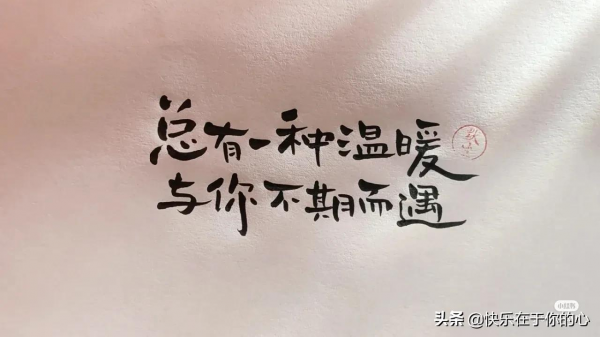 总有一种温暖
与你不期而遇
小红书
头条 @快乐在于你的心